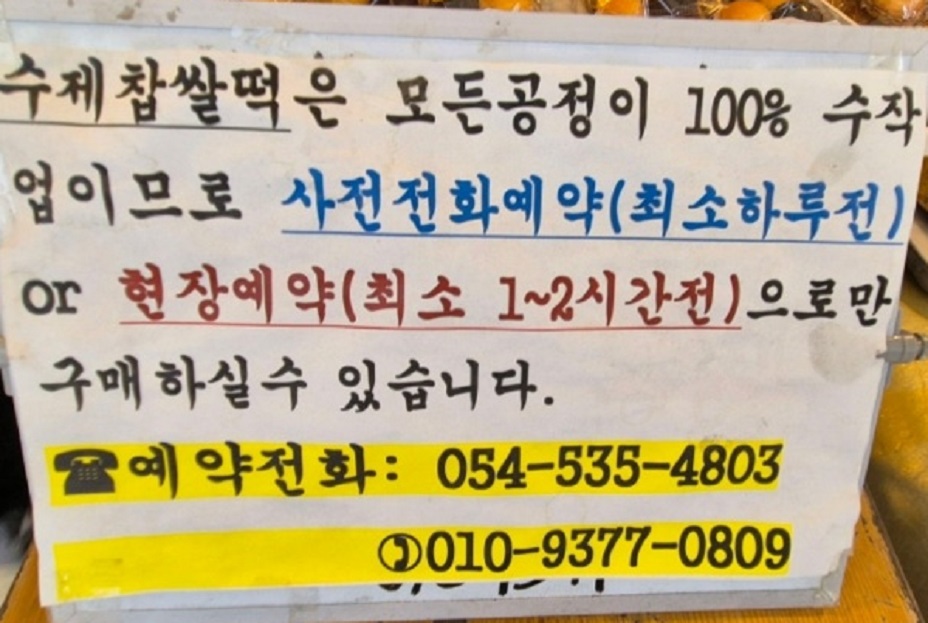 수제찹쌀떡은 모든공정이 100% 수작
업이므로 사전전화예약(최소하루전)
or 현장예약(최소 1~2시간전)으로만
구매하실수 있습니다.
☎예약전화: 054-535-4803
✆010-9377-0809